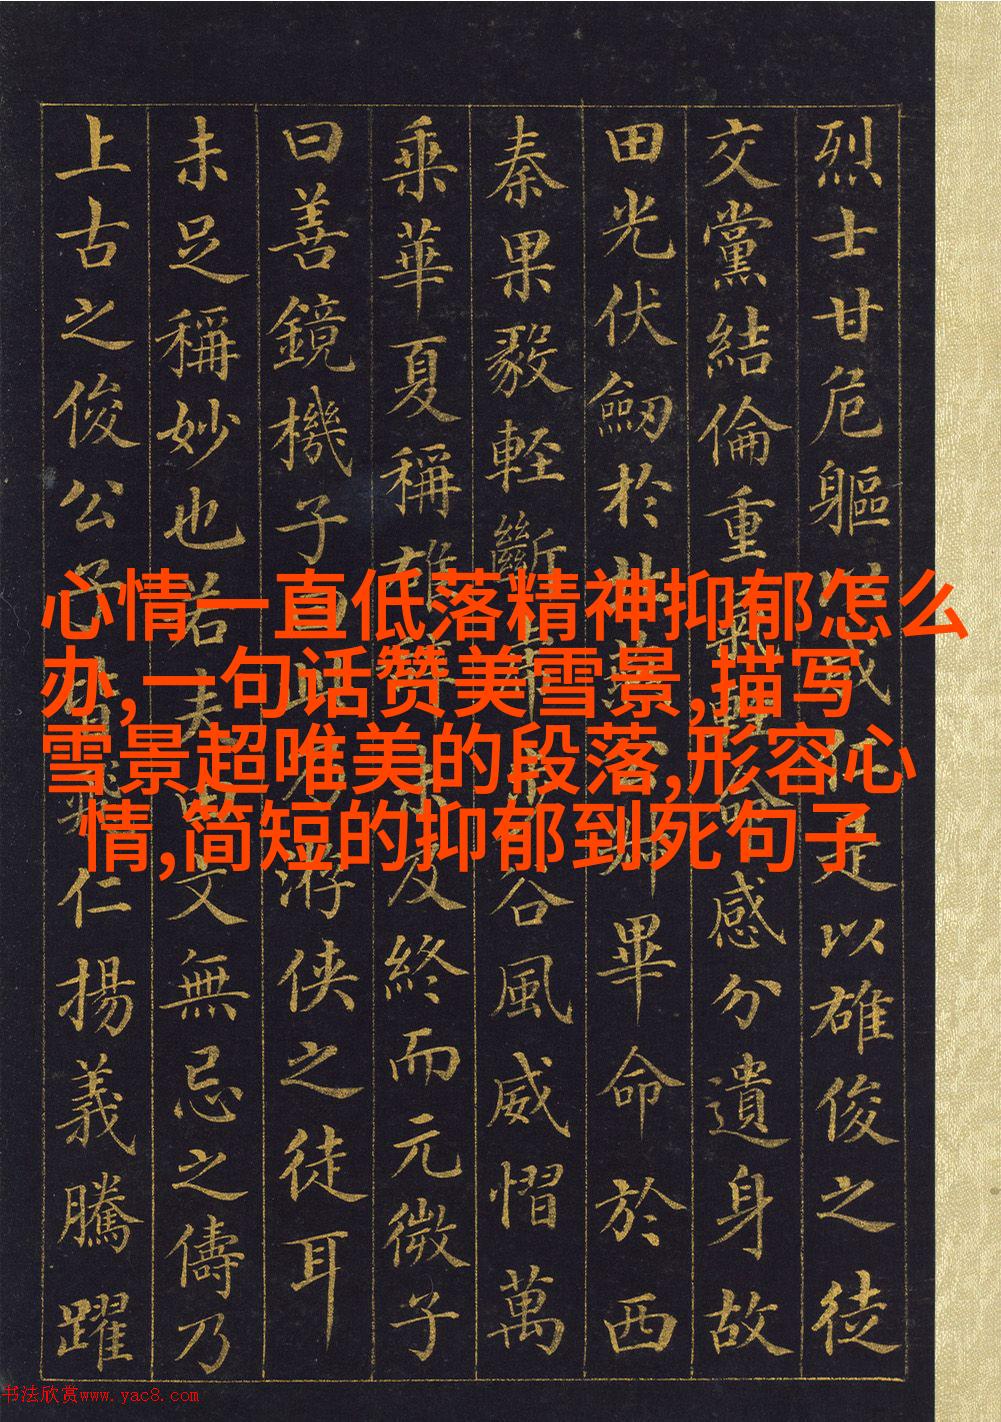 烈士甘危軀以成仁是以雄俊之徒
交黨結倫重氣輕命感分遺身故
田光伏劒於北燕公叔畢命於西
秦果毅輕斷虎步谷風威慴萬
乘華夏稱雄辭未及終而元微子
曰善鏡機子曰此乃游俠之徒耳
未足稱妙也若夫田文無忌之儔乃
上古之俊公子也皆飛仁揚義騰躍
心情一直低落精神抑郁怎么
办,一句话赞美雪景,描写
雪景超唯美的段落,形容心
情,简短的抑郁到死句子
书法欣赏www.yac8.com